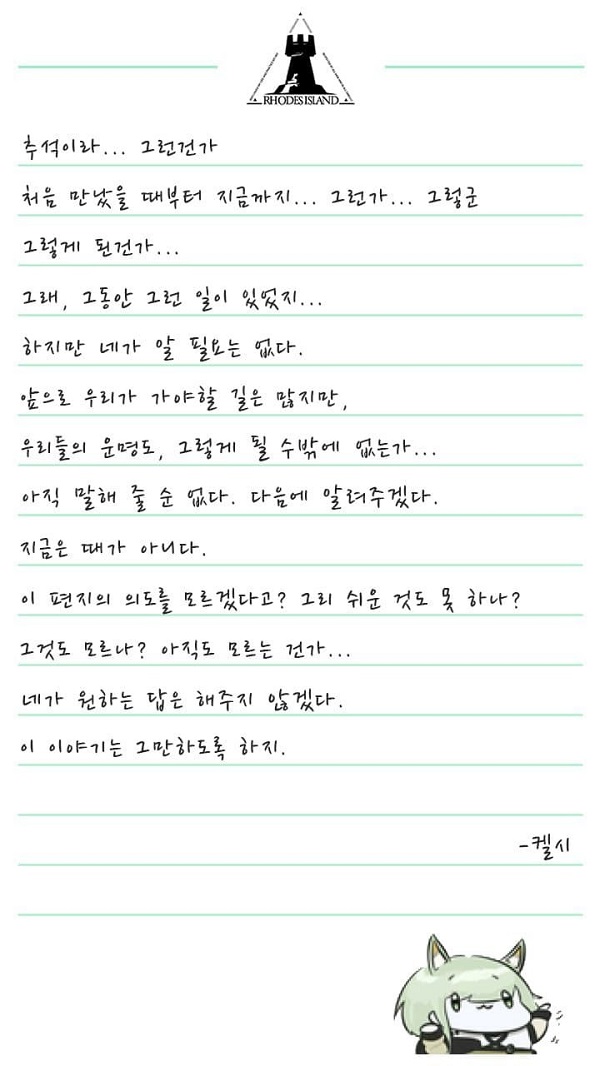 RHODES ISLAND
추석이라... 그런건가
처음 만났을 때부터 지금까지... 그런가... 그렇군
그렇게 된건가...
그래, 그동안 그런 일이 있었지...
하지만 네가 알 필요는 없다.
앞으로 우리가 가야할 길은 많지만,
우리들의 운명도, 그렇게 될 수밖에 없는가...
아직 말해 줄 순 없다. 다음에 알려주겠다.
지금은 때가 아니다.
이 편지의 의도를 모르겠다고? 그리 쉬운 것도 못 하나?
그것도 모르나? 아직도 모르는 건가...
네가 원하는 답은 해주지 않겠다.
이 이야기는 그만하도록 하지.
-켈시